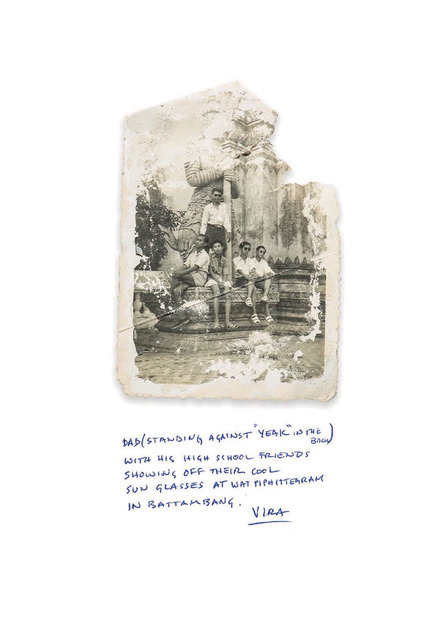 DAD (STANDING AGAINST "YEAK" IN THE BACK)
WITH HIS HIGH SCHOOL FRIENDS
SHOWING OFF THEIR COOL
SUN GLASSES AT WAT PIPHITTEARAM
IN BATTAMBANG.
VIRA